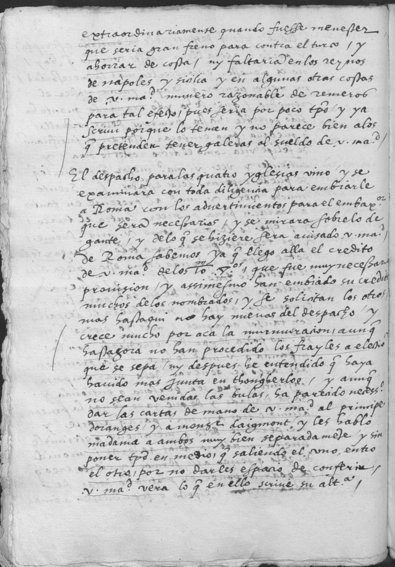 extraordinariamente quando fuesse menester
que seria gran freno para contra el turco / y
ahorrar de costa / ny faltaria en los reynos
de napoles y sicilia y en algunas otras cossas
de v. mad. numero razonable de remeros
para tal efeto / pues seria por poco tpo y ya
screui porque lo tenian y no parece bien a los
q pretenden tener galeras al sueldo de v. mad /
El despacho para las quatro yglesias vino y se
examinara con toda diligencia para embiarle
a Roma con los aduertimientos para el embaxor
que sera necessarios / y se mirara sobre lo de
gante / y de lo q se hiziere sera auisado v. mad
de Roma sabemos ya q llego alla el credito
de v. mad de los que fue muy necessaria
prouision / y assimesmo han embiado su credito
muchos de los nombrados / y se solicitan los otros
mas hasta qui no hay nueuas del despacho / y
crece mucho por aca la murmuracion / aunq
hastagora no han procedido los frayles a election
que se sepa / ny despues he entendido q haya
hauido mas junta en thongherloo / y aunq
no sean venidas las bulas / ha parecido necess.
dar las cartas de mano de v. mad al principe
doranges / y a monsr daigmont / y les hablo
madama a ambos muy bien separadamete y sin
poner tpo en medio q saliendo el vno, entro
el otro / por no darles espacio de conferir /
v. mad vera lo q en ello scriue su alt.a /